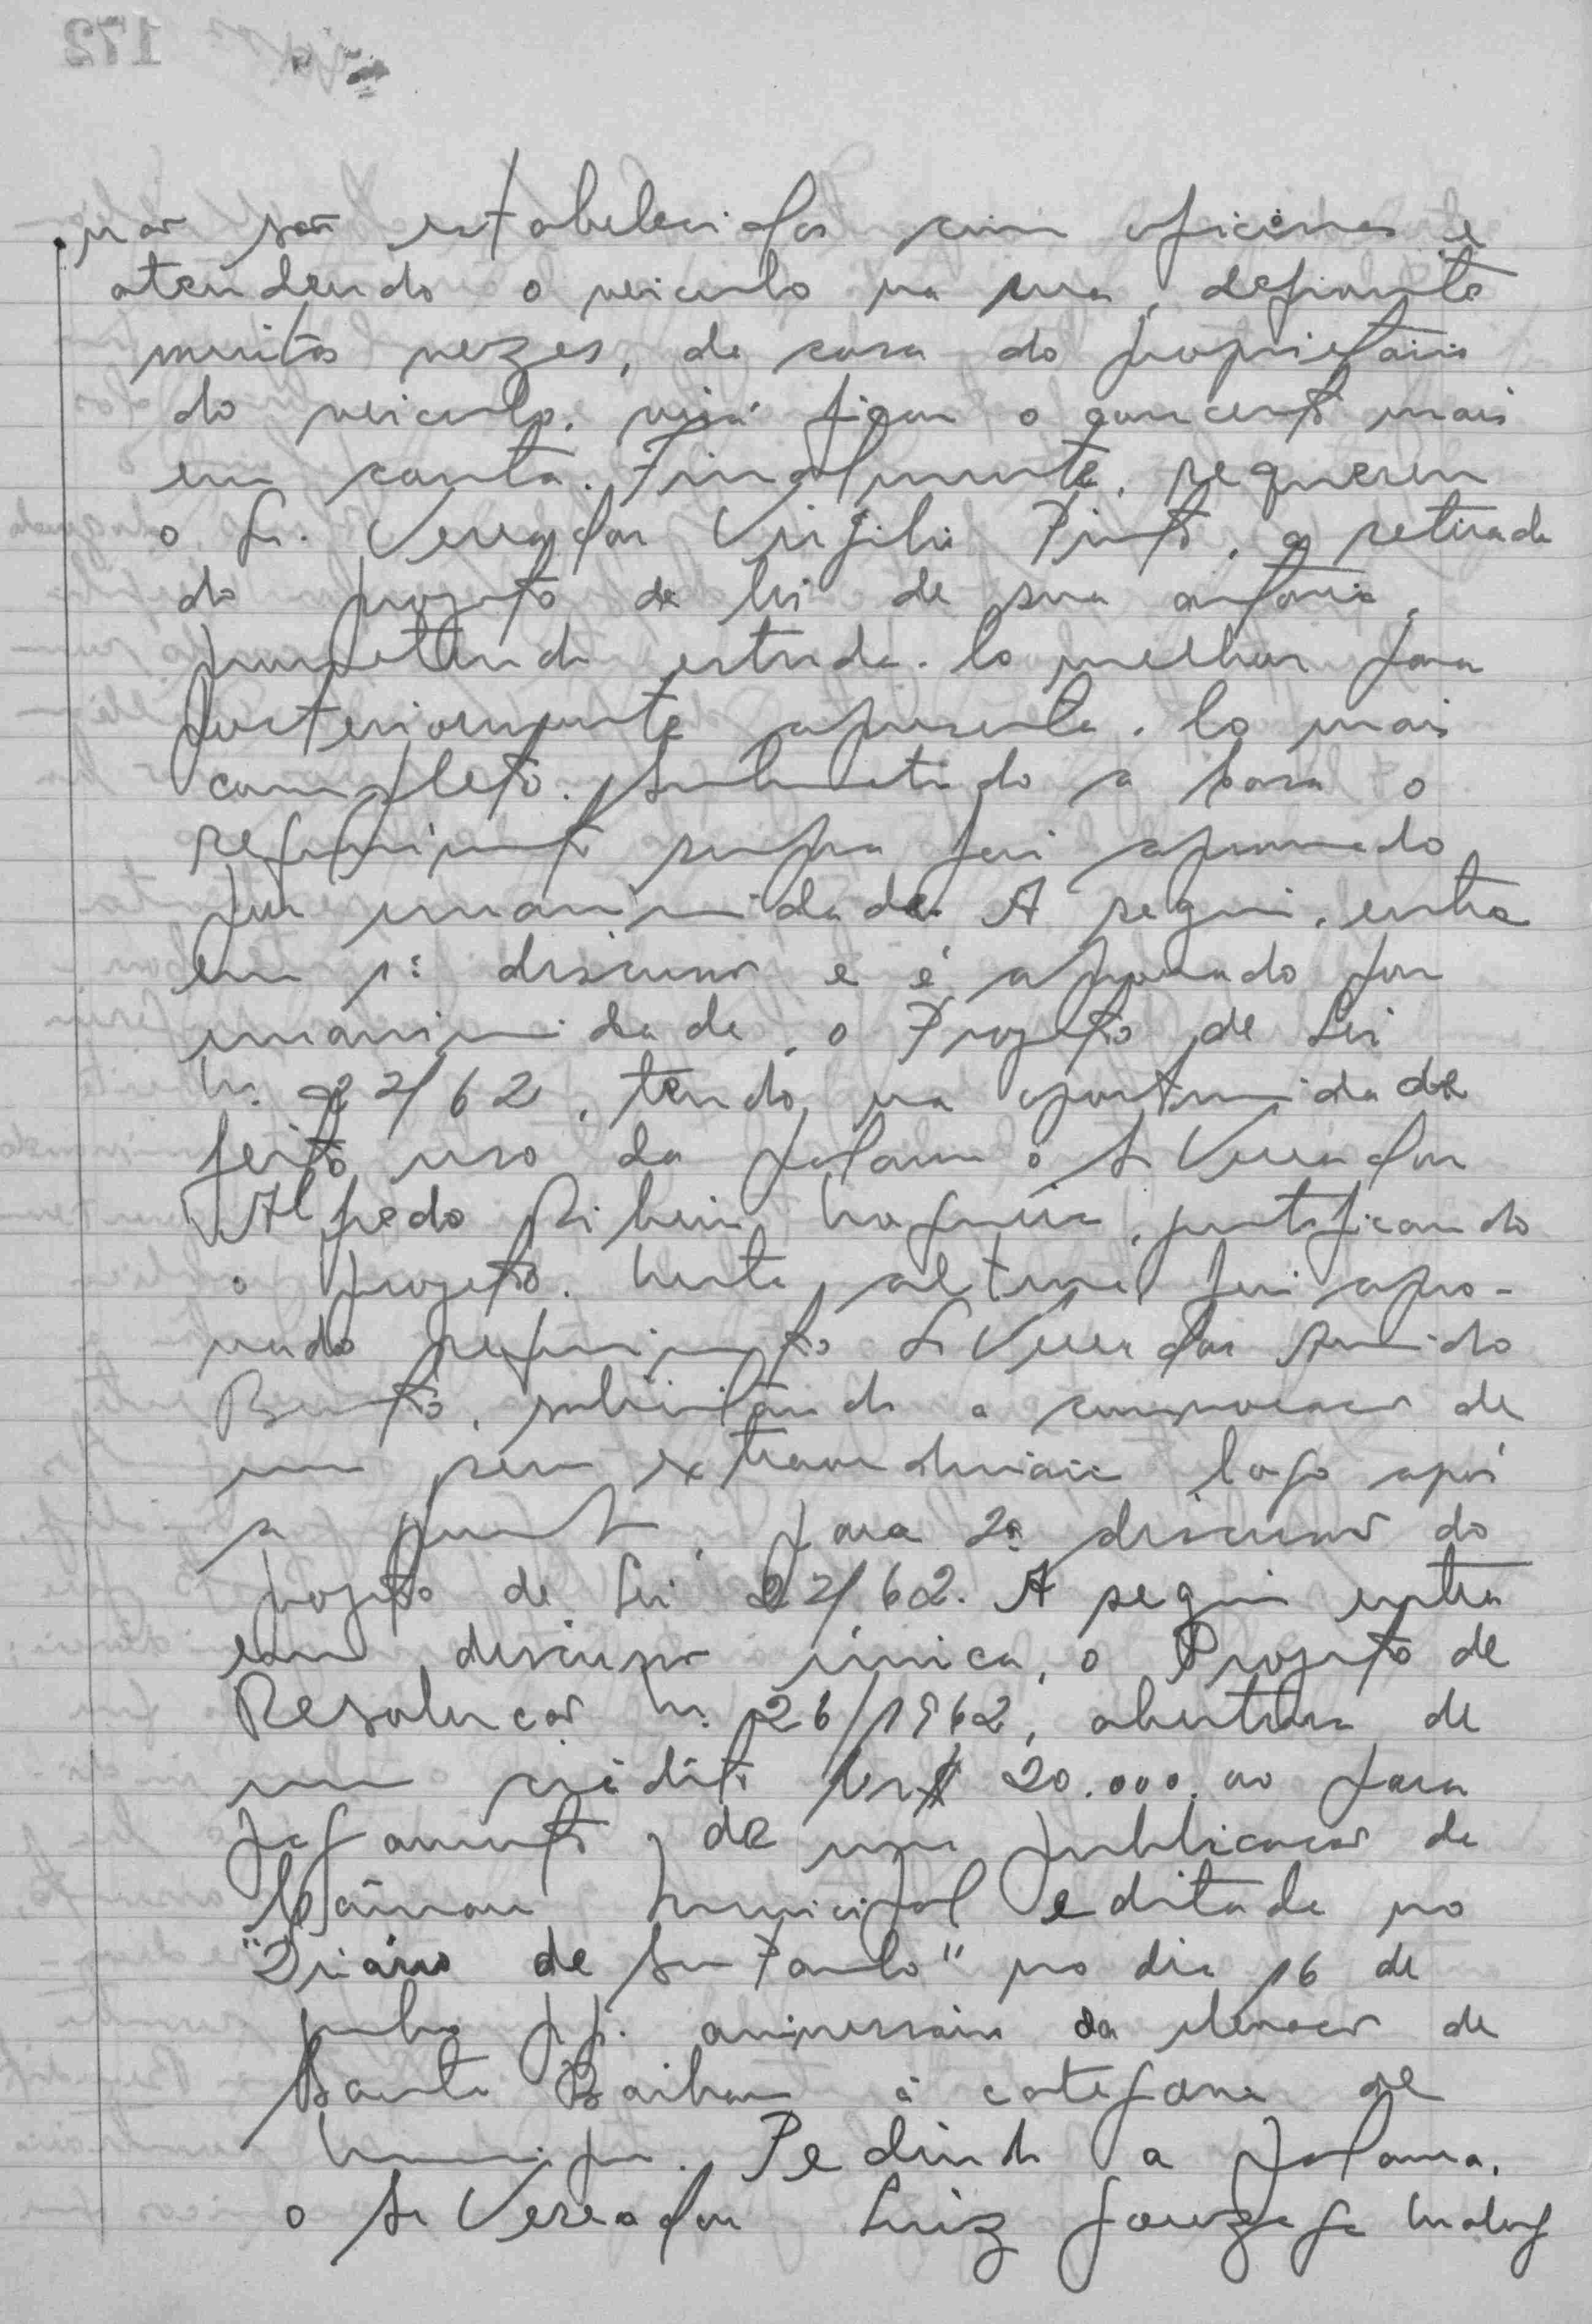 não são estabelecidos com oficinas e
atendendo o veiculo na rua, defronte
muitas vezes, da casa do proprietário
do veiculo, virá ficar o concerto mais
em conta. Finalmente, requereu
o Sr. Vereador Virgilio Pinto, a retirada
do projeto de lei de sua autoria,
prometendo estuda-lo melhor para
posteriormente apresenta-lo mais
completo. Submetido a casa o
requerimento supra foi aprovado
por unanimidade. A seguir, entra
em 1ª discussão e é aprovado por
unanimidade, o Projeto de Lei
Nº 22/62, tendo na oportunidade
feito uso da palavra o Sr Vereador
Alfredo Ribeiro Nogueira, justificando
o projeto. Nesta altura foi apro-
vado requerimento Sr Vereador
Bento, solicitando a convocação de
uma sessão extraordinária logo após
a presente, para 2ª discussão do
projeto de Lei 22/62. A seguir entra
em discussão única, o Projeto de
Resolução Nº 26/1962, abertura de
um crédito Cr$ 20.000,00 para
pagamento de uma publicação da
Câmara Municipal editada no
"Diário de São Paulo" no dia 16 de
junho p.p. aniversário da elevação de
Santa Barbara à categoria de
Municipio. Pedindo a palavra,
o Sr Vereador Luiz Gonzaga